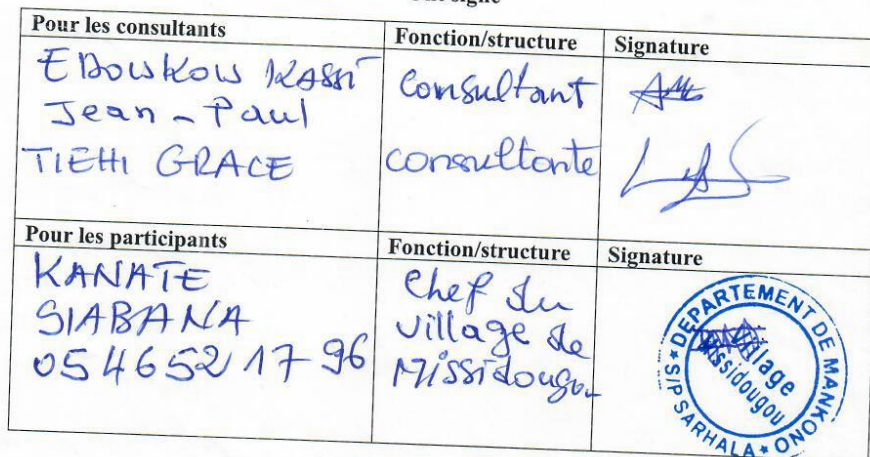 signé
Pour les consultants Fonction/structure Signature
EBOUKOU KASSI Consultant
Jean-Paul
TIEHI GRACE consultante
Pour les participants Fonction/structure Signature
KANATE Chef du
SIABANA village de
05 46 52 17 96 Missidougou
DEPARTEMENT DE MANKONO
S/P SARHALA
Village
Missidougou